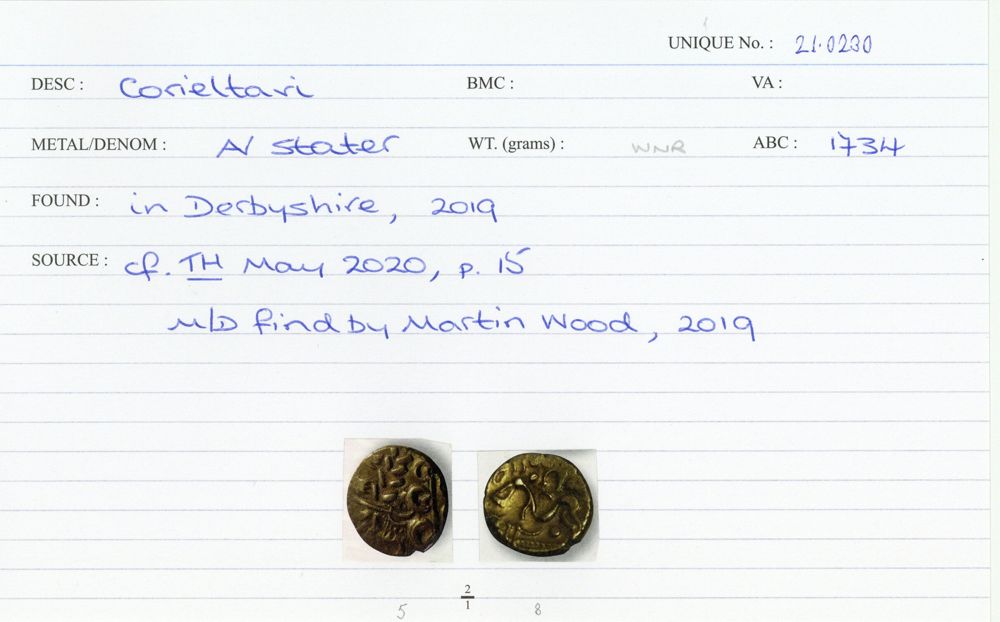 UNIQUE No. : 21.0230
DESC : Corieltavi BMC : VA :
METAL/DENOM : AV stater WT. (grams) : WNR ABC : 1734
FOUND : in Derbyshire, 2019
SOURCE : cf. TH May 2020, p. 15
M/D find by Martin Wood, 2019
2
1
5 8